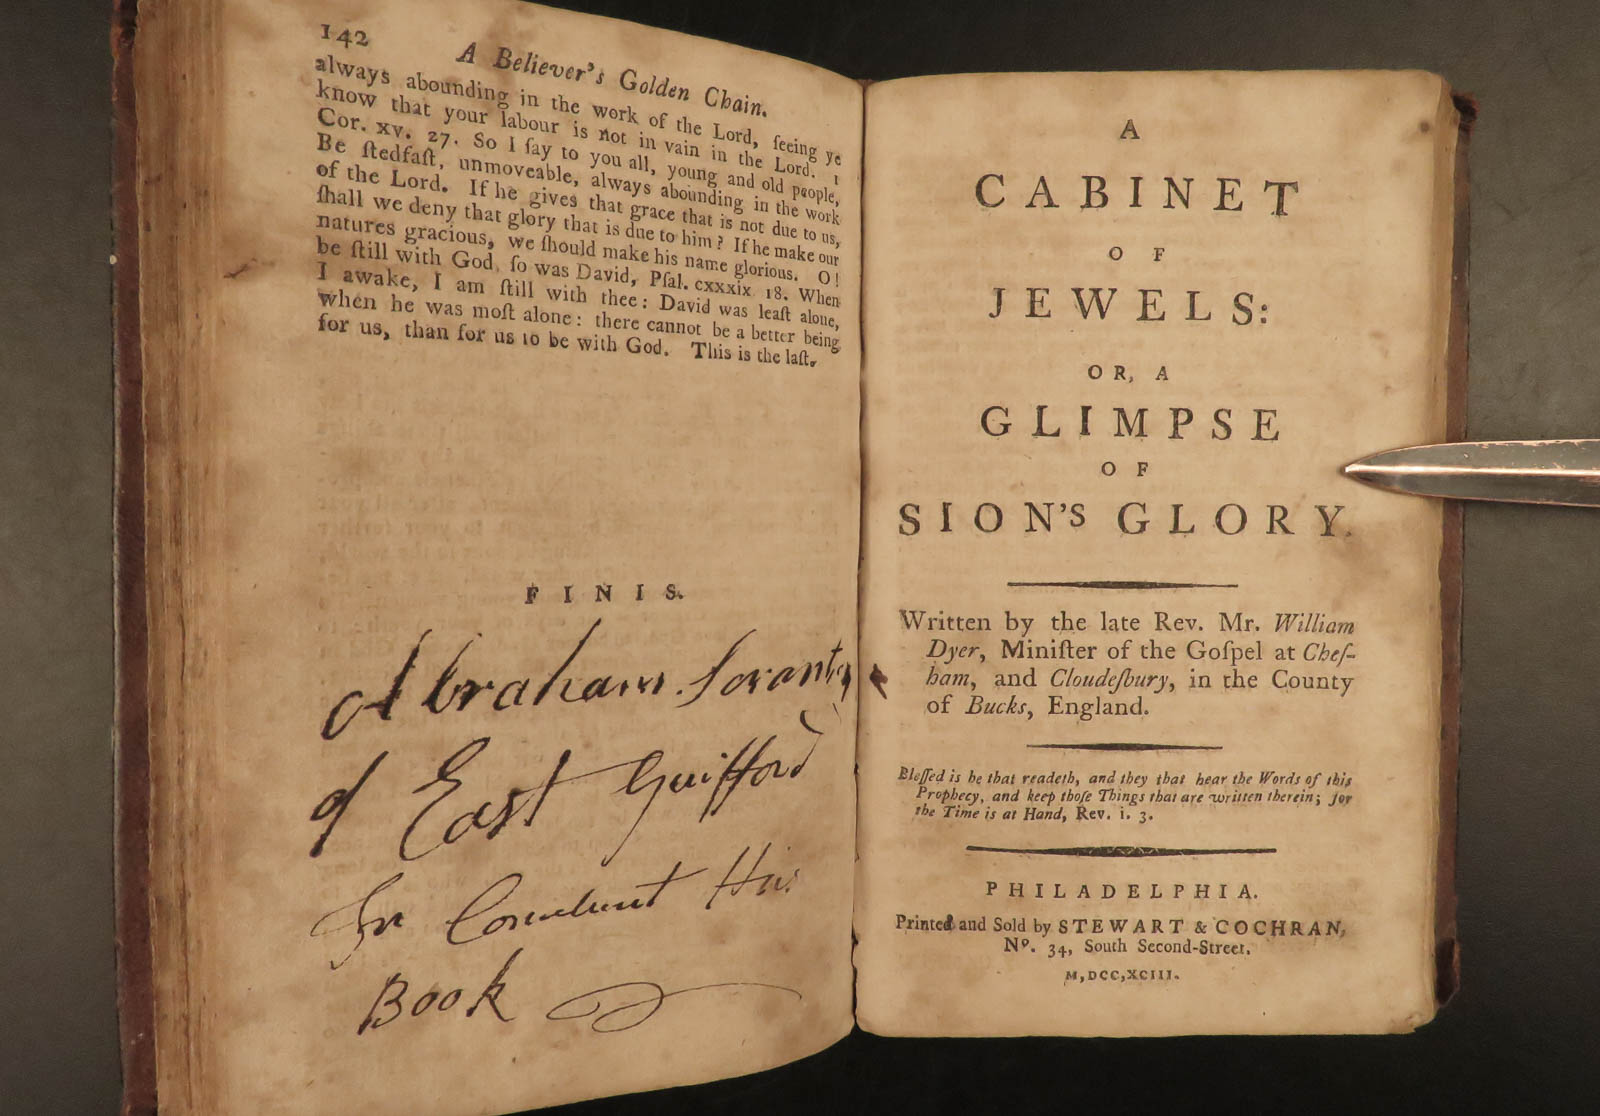 142
A Believer's Golden Chain.
always abounding in the work of the Lord, ſeeing ye
know that your labour is not in vain in the Lord. 1
Cor. xv. 27. So I ſay to you all, young and old people,
Be ſtedfaſt, unmoveable, always abounding in the work
of the Lord. If he gives that grace that is not due to us,
ſhall we deny that glory that is due to him? If he make our
natures gracious, we ſhould make his name glorious. O!
be ſtill with God, ſo was David, Pſal. cxxxix 18. When
I awake, I am ſtill with thee: David was leaſt alone,
when he was moſt alone: there cannot be a better being
for us, than for us to be with God. This is the laſt.
FINIS.
Abraham
of East Guifford
In His
Book
A
CABINET
OF
JEWELS:
OR, A
GLIMPSE
OF
SION'S GLORY.
Written by the late Rev. Mr. William
Dyer, Miniſter of the Goſpel at Cheſ-
ham, and Cloudeſbury, in the County
of Bucks, England.
Bleſſed is he that readeth, and they that hear the Words of this
Prophecy, and keep thoſe Things that are written therein; for
the Time is at Hand, Rev. i. 3.
PHILADELPHIA.
Printed and Sold by STEWART & COCHRAN,
No. 34, South Second-Street.
M,DCC,XCIII.